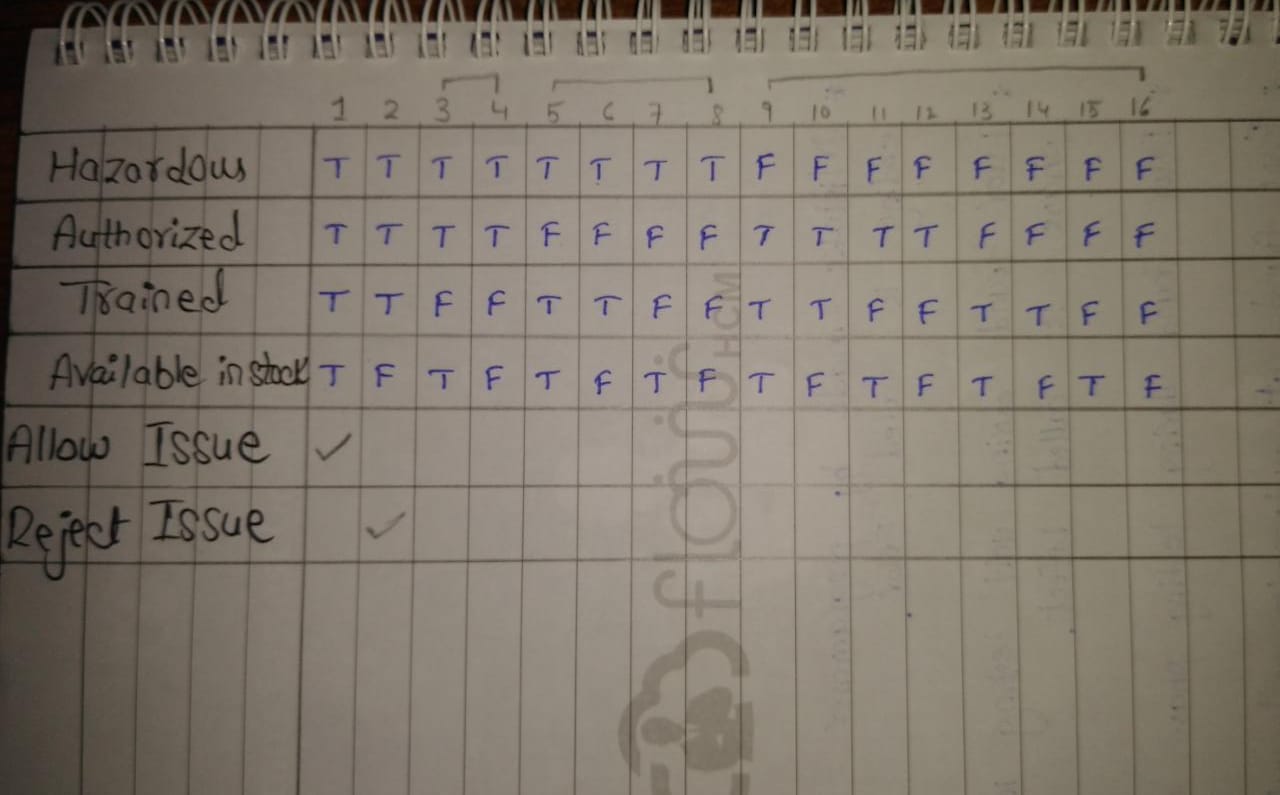 1 2 3 4 5 6 7 8 9 10 11 12 13 14 15 16
Hazardous T T T T T T T T F F F F F F F F
Authorized T T T T F F F F T T T T F F F F
Trained T T F F T T F F T T F F T T F F
Available in stock T F T F T F T F T F T F T F T F
Allow Issue ✓
Reject Issue ✓
flowHCM